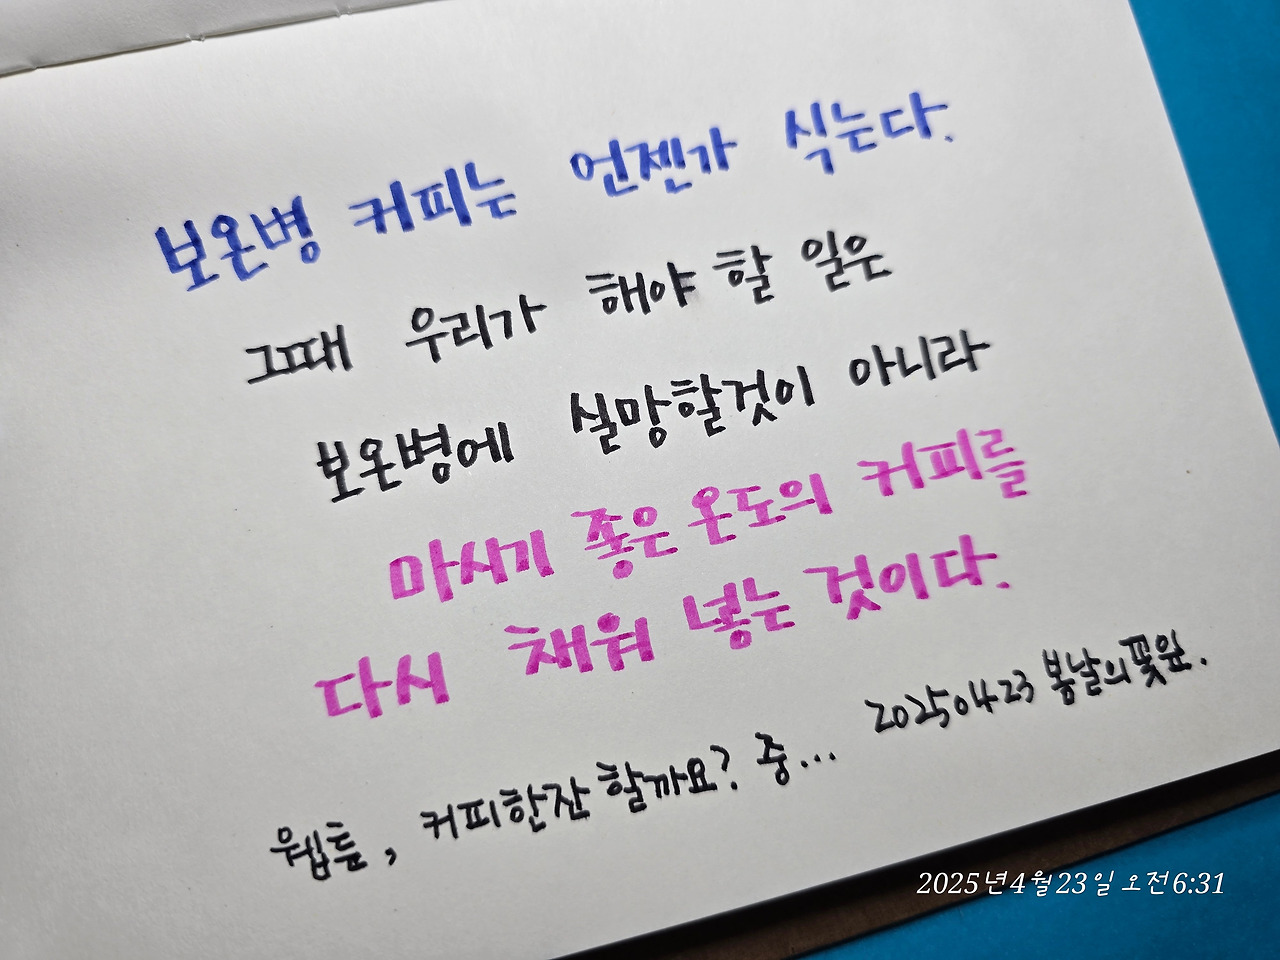 보온병 커피는 언젠가 식는다.
그때 우리가 해야 할 일은
보온병에 실망할것이 아니라
마시기 좋은 온도의 커피를
다시 채워 넣는 것이다.
20250423 봄날의꽃잎.
웹튼, 커피한잔 할까요? 중...
2025년4월23일 오전6:31